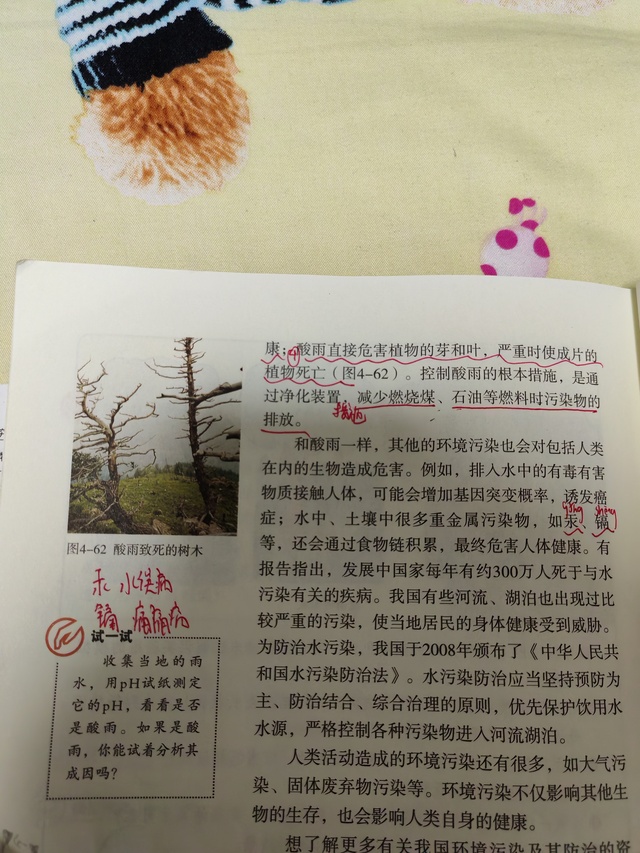 康；④酸雨直接危害植物的芽和叶，严重时使成片的
植物死亡（图4-62）。控制酸雨的根本措施，是通
过净化装置，减少燃烧煤、石油等燃料时污染物的
措施
排放。
和酸雨一样，其他的环境污染也会对包括人类
在内的生物造成危害。例如，排入水中的有毒有害
物质接触人体，可能会增加基因突变概率，诱发癌
症；水中、土壤中很多重金属污染物，如汞、镉
等，还会通过食物链积累，最终危害人体健康。有
报告指出，发展中国家每年有约300万人死于与水
污染有关的疾病。我国有些河流、湖泊也出现过比
较严重的污染，使当地居民的身体健康受到威胁。
为防治水污染，我国于2008年颁布了《中华人民共
和国水污染防治法》。水污染防治应当坚持预防为
主、防治结合、综合治理的原则，优先保护饮用水
水源，严格控制各种污染物进入河流湖泊。
人类活动造成的环境污染还有很多，如大气污
染、固体废弃物污染等。环境污染不仅影响其他生
物的生存，也会影响人类自身的健康。
想了解更多有关我国环境污染及其防治的资
图4-62 酸雨致死的树木
汞 水俣病
镉 痛痛病
试一试
收集当地的雨
水，用pH试纸测定
它的pH，看看是否
是酸雨。如果是酸
雨，你能试着分析其
成因吗？